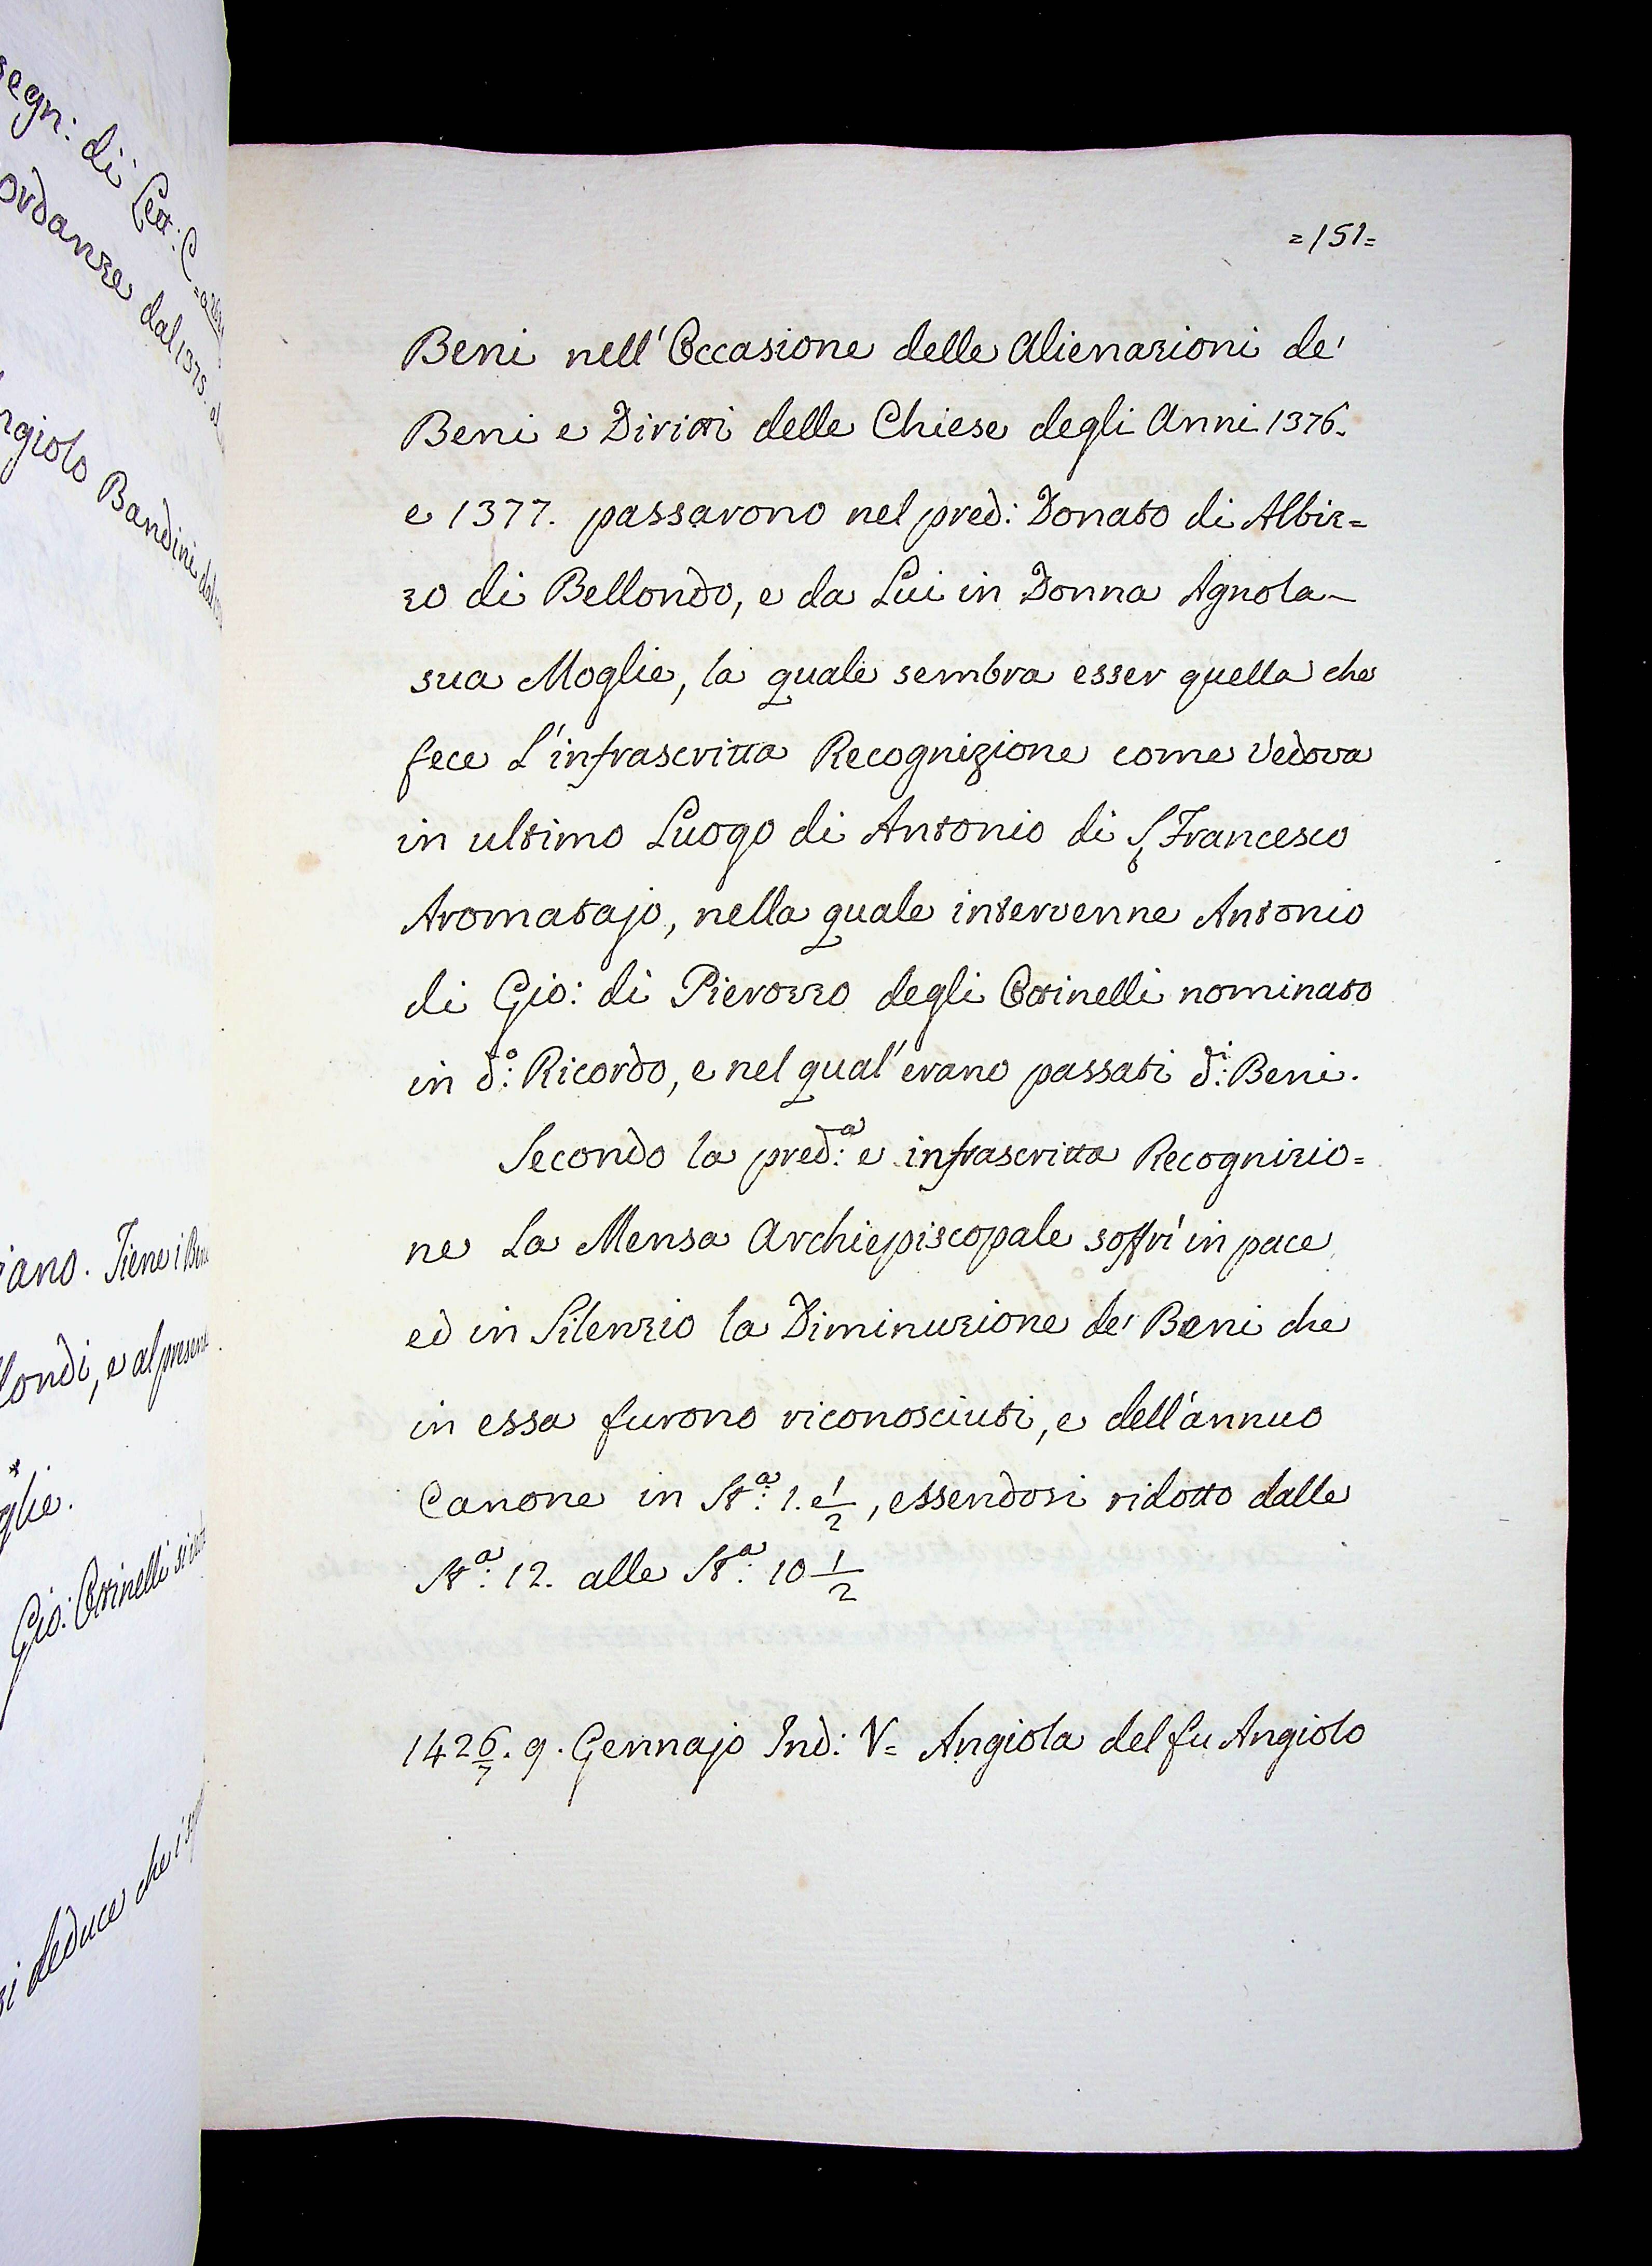 segn: di Lett: C
ordanze dal 1375. al
ngiolo Bandini dal
iano. Tiene i Beni
londi, e al present
glie.
Gio: Ottinelli si
si deduce che i
=151=
Beni nell'Occasione delle Alienazioni de'
Beni e Diritti delle Chiese degli Anni 1376.
e 1377. passarono nel pred: Donato di Albiz=
zo di Bellondo, e da Lui in Donna Agnola
sua Moglie, la quale sembra esser quella che
fece L'infrascritta Recognizione come Vedova
in ultimo Luogo di Antonio di S. Francesco
Aromatajo, nella quale intervenne Antonio
di Gio: di Pierozzo degli Ottinelli nominato
in d:º Ricordo, e nel qual'erano passati d:i Beni.
Secondo la pred:a e infrascritta Recognizio=
ne La Mensa Archiepiscopale soffrì in pace
ed in Silenzio la Diminuzione de' Beni che
in essa furono riconosciuti, e dell'annuo
Canone in St:a 1. e 1/2, essendosi ridotto dalle
St:a 12. alle St:a 10 1/2
1426/7. 9. Gennajo Ind: V= Angiola del fu Angiolo